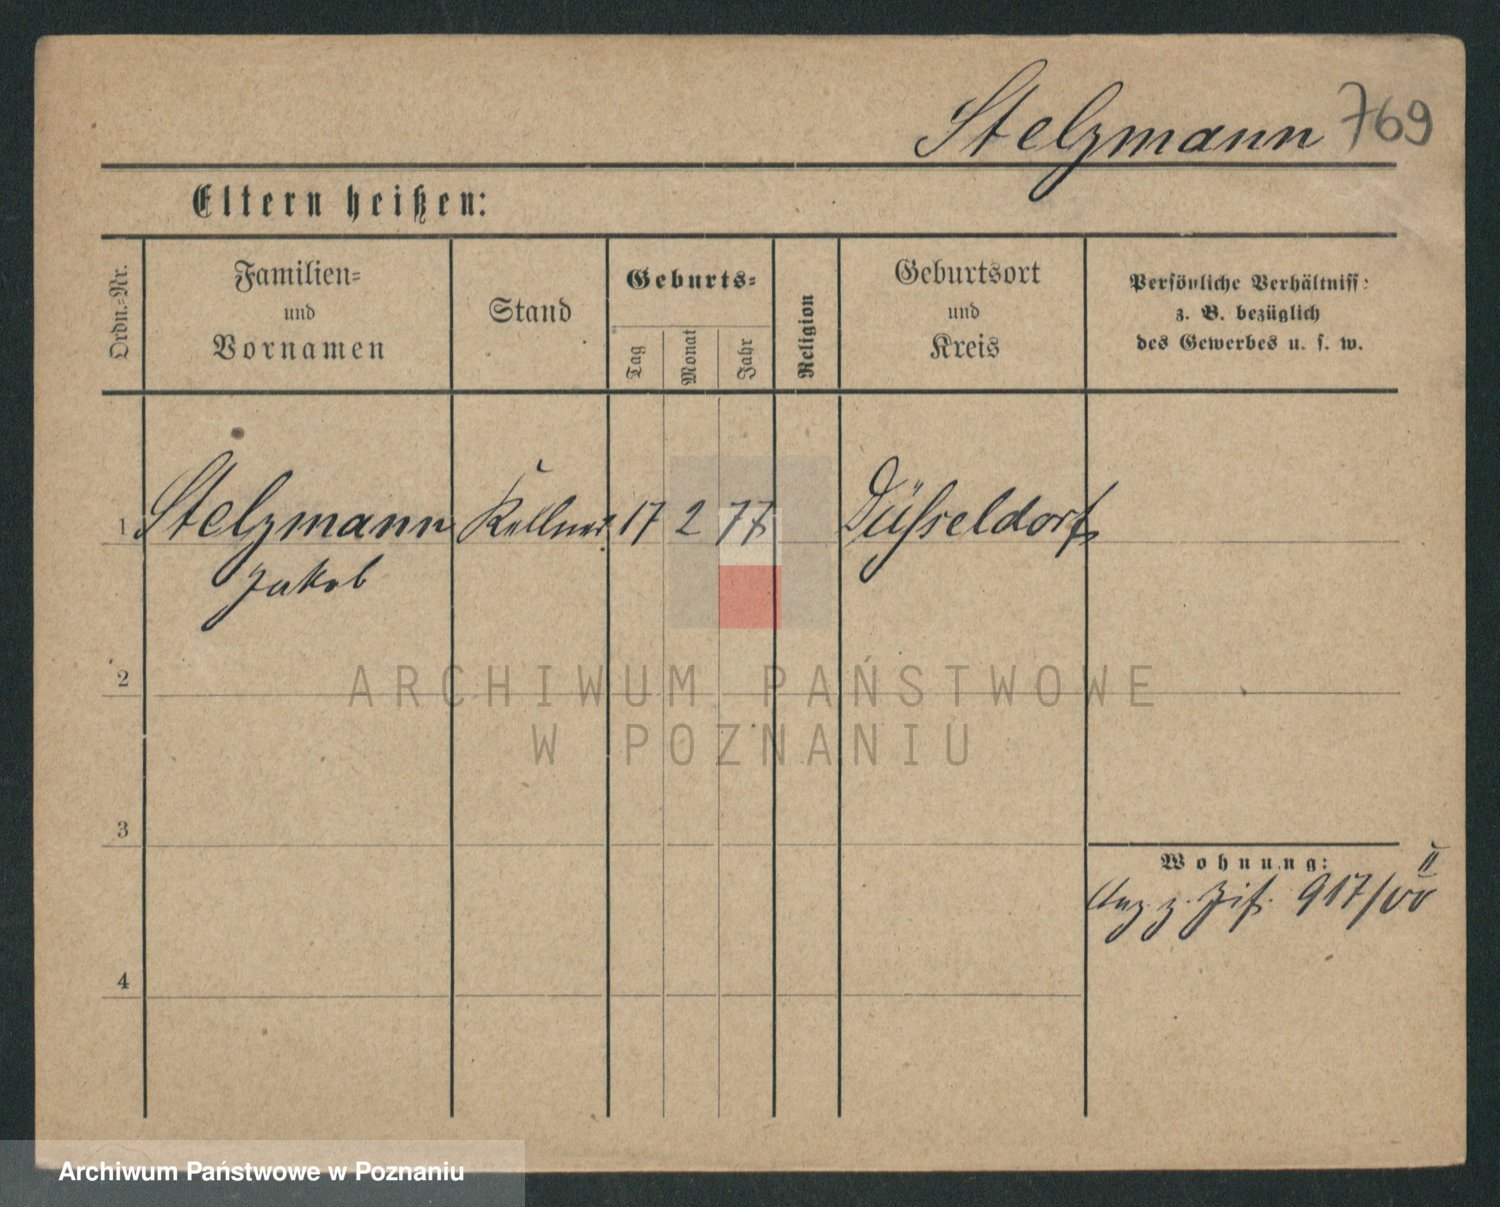 Stelzmann 769
Eltern heißen:
Ordn.-Nr.
Familien-
und
Vornamen
Stand
Geburts-
Tag
Monat
Jahr
Religion
Geburtsort
und
Kreis
Persönliche Verhältniss:
z. B. bezüglich
des Gewerbes u. s. w.
1 Stelzmann Kellner 17 2 77 Düsseldorf
Jakob
2
ARCHIWUM PAŃSTWOWE
W POZNANIU
3
Wohnung:
II
917/00
4
Archiwum Państwowe w Poznaniu